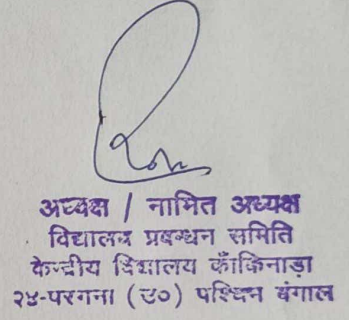 अध्यक्ष / नामित अध्यक्ष
विद्यालय प्रबन्धन समिति
केन्द्रीय विद्यालय काँकिनाड़ा
२४-परगना (उ०) पश्चिम बंगाल